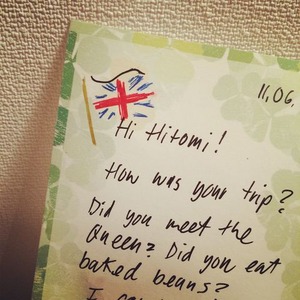 11,06,
Hi Hitomi!
How was your trip?
Did you meet the
Queen? Did you eat
baked beans?
I